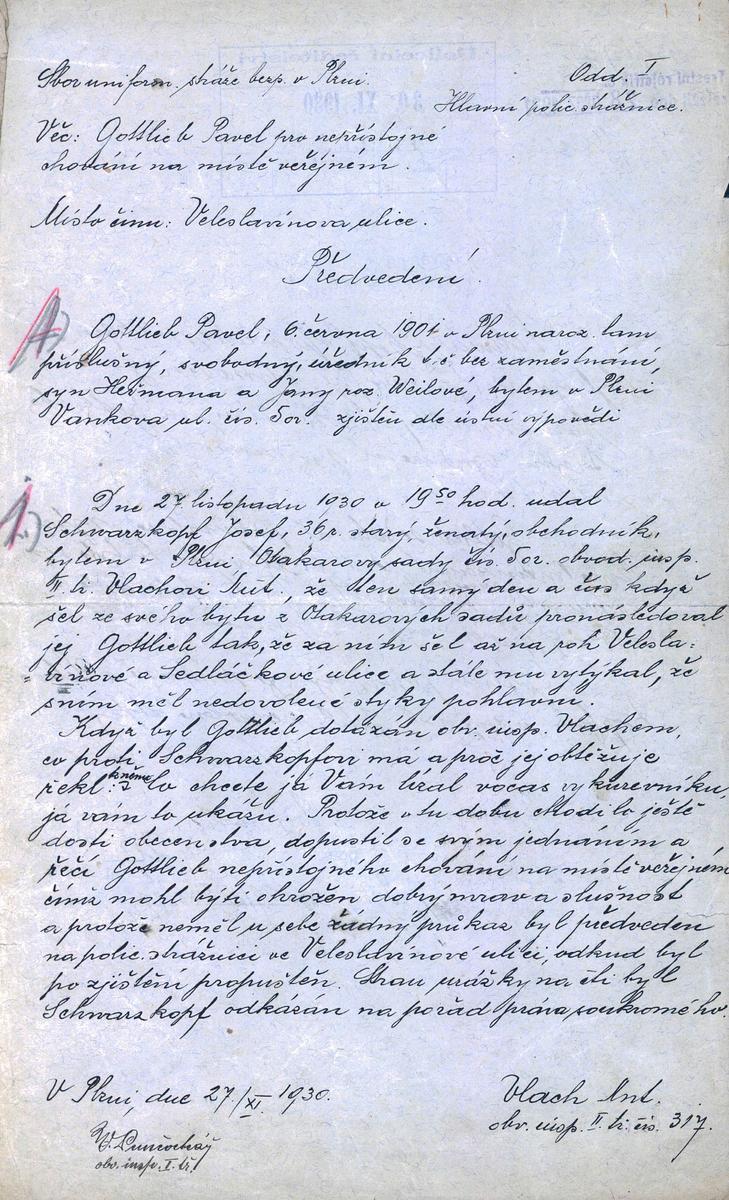 Sbor uniform. stráže bezp. v Plzni.
Odd. I
Hlavní polic. strážnice.
Věc: Gottlieb Pavel pro nepřístojné
chování na místě veřejném.
Místo činu: Veleslavínova ulice.
Předvedení.
Gottlieb Pavel, 6. června 1901 v Plzni naroz. tam
příslušný, svobodný, úředník t. č. bez zaměstnání,
syn Heřmana a Jany roz. Weilové, bytem v Plzni
Vankova ul. čís. 5or. zjištěn dle ústní výpovědi
Dne 27. listopadu 1930 v 19 50 hod. udal
Schwarzkopf Josef, 36 r. starý, ženatý, obchodník,
bytem v Plzni Otakarovy sady čís. 5or. obvod. insp.
II. tř. Vlachovi Ant., že ten samý den a čas když
šel ze svého bytu z Otakarových sadů pronásledoval
jej Gottlieb tak, že za ním šel až na roh Velesla-
=vínové a Sedláčkové ulice a stále mu vytýkal, že
sním měl nedovolené styky pohlavní.
Když byl Gottlieb dotázán obv. insp. Vlachem,
co proti Schwarzkopfovi má a proč jej obtěžuje
řekl k němu: to chcete já Vám lízal vocas vy kurevníku,
já vám to ukážu. Protože v tu dobu chodilo ještě
dosti obecenstva, dopustil se svým jednáním a
řečí Gottlieb nepřístojného chování na místě veřejném
čímž mohl býti ohrožen dobrý mrav a slušnost
a protože neměl u sebe žádný průkaz byl předveden
na polic. strážnici ve Veleslavínové ulici, odkud byl
po zjištění propuštěn. Stran urážky na cti byl
Schwarzkopf odkázán na pořad práva soukromého.
V Plzni, dne 27./XI. 1930.
Vlach Ant.
obv. insp. II. tř. čís. 317.
obv. insp. I. tř.